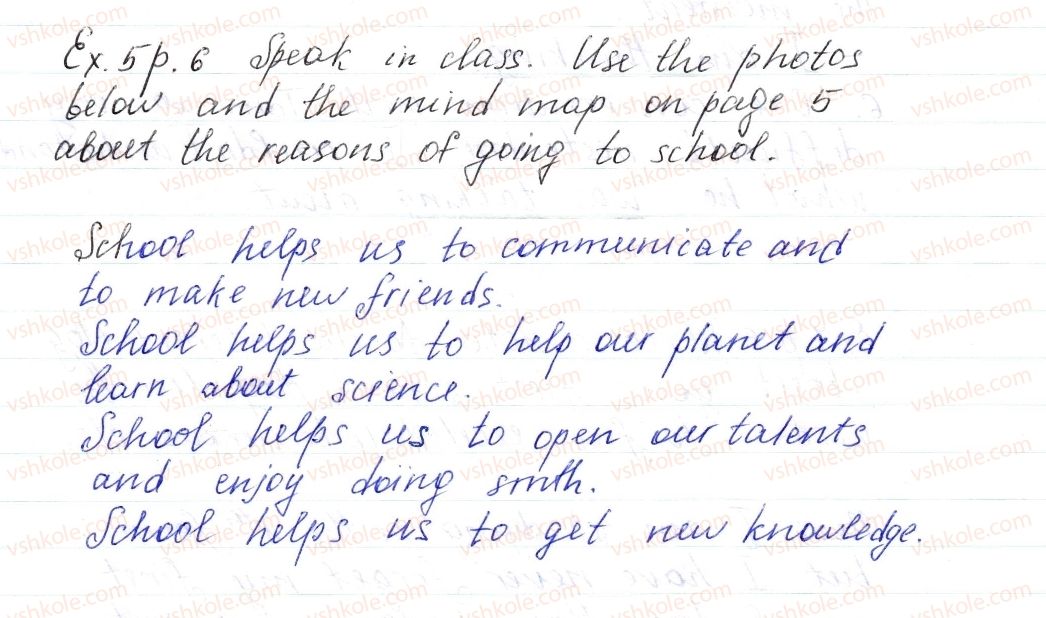 Ex. 5 p. 6 Speak in class. Use the photos
below and the mind map on page 5
about the reasons of going to school.
School helps us to communicate and
to make new friends.
School helps us to help our planet and
learn about science.
School helps us to open our talents
and enjoy doing smth.
School helps us to get new knowledge.